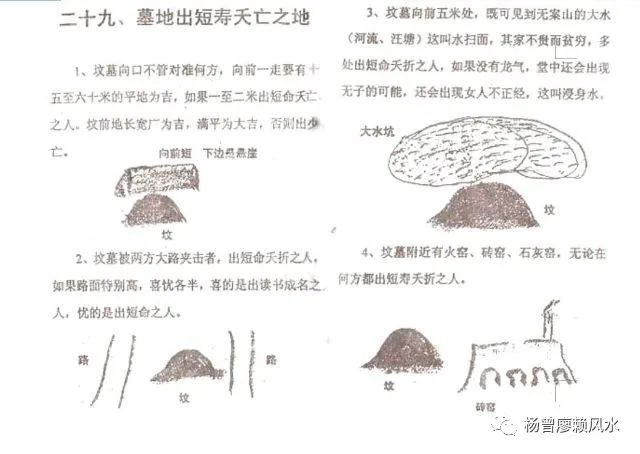 二十九、墓地出短寿夭亡之地
1、坟墓向口不管对准何方，向前一走要有十
五至六十米的平地为吉，如果一至二米出短命夭亡
之人。坟前地长宽广为吉，满平为大吉，否则出少
亡。
向前短 下边是悬崖
坟
2、坟墓被两方大路夹击者，出短命夭折之人，
如果路面特别高，喜忧各半，喜的是出读书成名之
人，忧的是出短命之人。
路
坟
路
3、坟墓向前五米处，既可见到无案山的大水
（河流、汪塘）这叫水扫面，其家不贵而贫穷，多
处出短命夭折之人，如果没有龙气，堂中还会出现
无子的可能，还会出现女人不正经，这叫浸身水。
大水坑
坟
4、坟墓附近有火窑、砖窑、石灰窑，无论在
何方都出短寿夭折之人。
坟
砖窑
杨曾廖赖风水